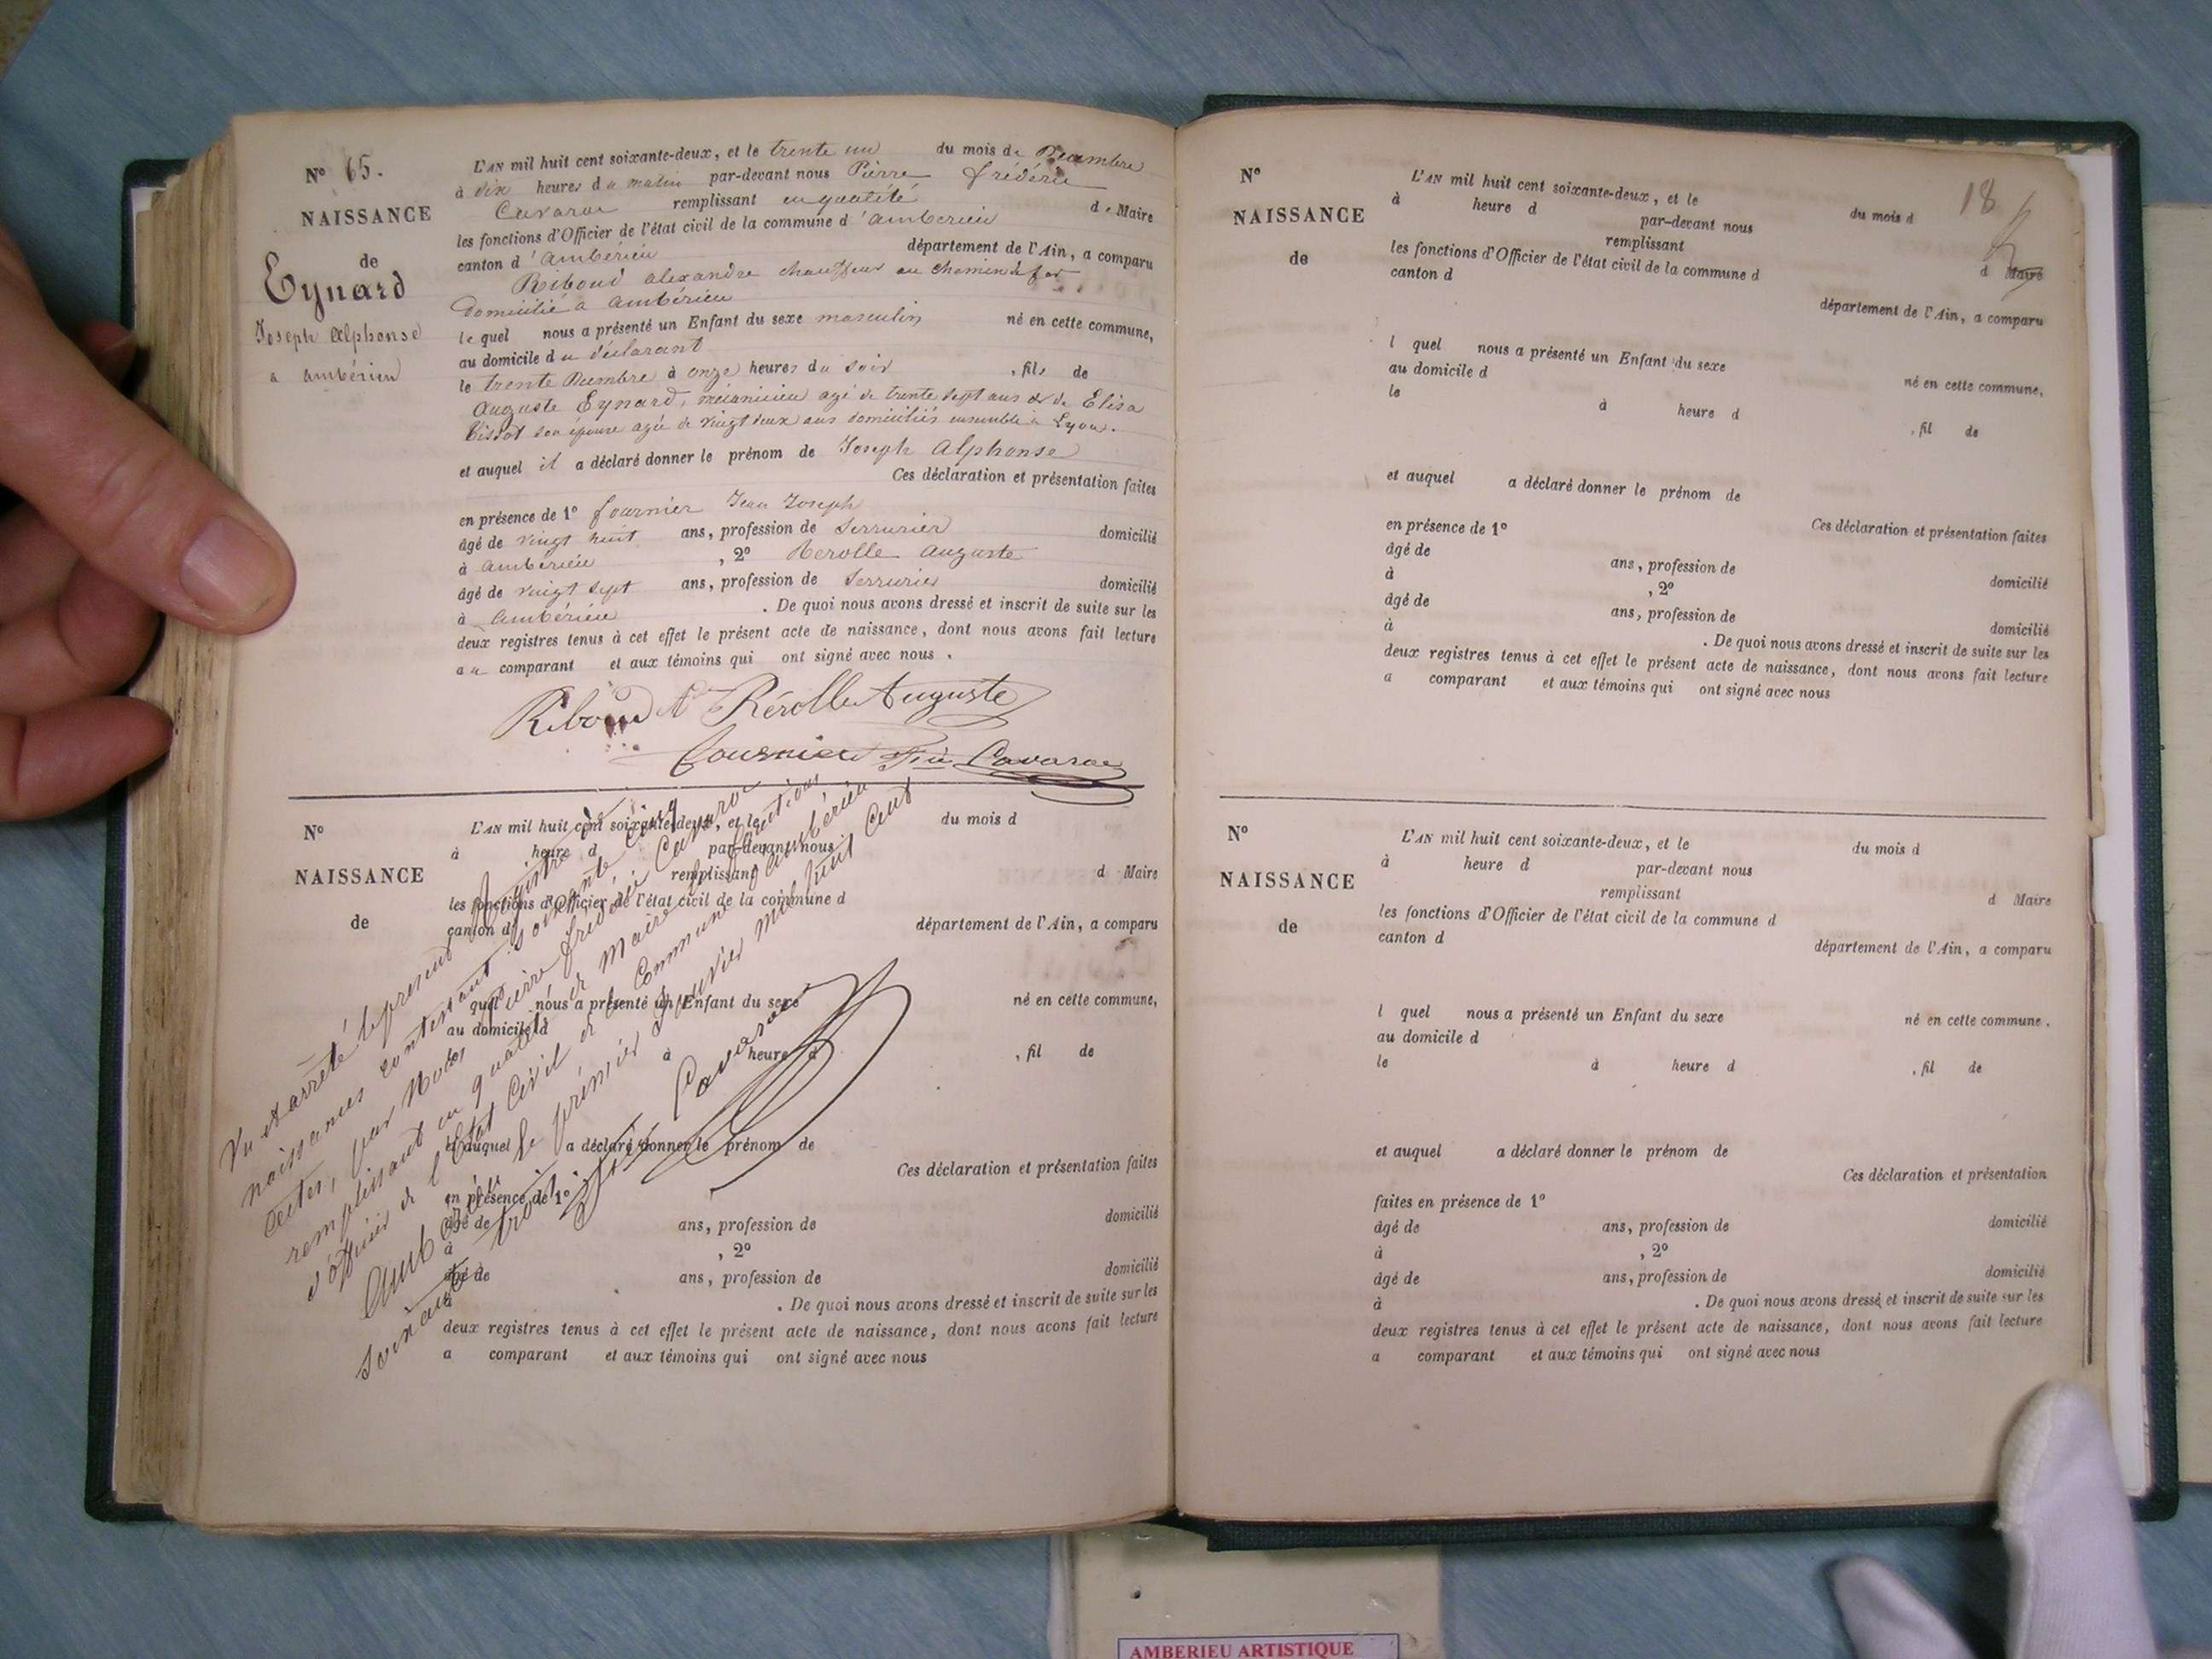 N° 65.
NAISSANCE
de
Eynard
Joseph Alphonse
a ambérieu
L'AN mil huit cent soixante-deux, et le trente un du mois de Decembre
à dix heures du matin par-devant nous Pierre frédéric
Cavaroc remplissant en qualité de Maire
les fonctions d'Officier de l'état civil de la commune d'ambérieu
canton d'ambérieu département de l'Ain, a comparu
Riboud alexandre chauffeur au chemin de fer
domicilié a ambérieu
lequel nous a présenté un Enfant du sexe masculin né en cette commune,
au domicile du déclarant
le trente Decembre à onze heures du soir , fils de
auguste Eynard, mécanicien agé de trente sept ans & de Elisa
son épouse agée de vingt deux ans domiciliés ensemble à Lyon.
et auquel il a déclaré donner le prénom de Joseph alphonse
Ces déclaration et présentation faites
en présence de 1° fournier Jean Joseph
âgé de vingt huit ans, profession de Serrurier domicilié
à ambérieu , 2° Rerolle auguste
âgé de vingt sept ans, profession de Serrurier domicilié
à ambérieu . De quoi nous avons dressé et inscrit de suite sur les
deux registres tenus à cet effet le présent acte de naissance, dont nous avons fait lecture
au comparant et aux témoins qui ont signé avec nous .
Riboud A Rérolle Auguste
Fournier Cavaroc
N°
NAISSANCE
de
L'AN mil huit cent soixante-deux, et le du mois d
à heure d par-devant nous
remplissant d Maire
les fonctions d'Officier de l'état civil de la commune d
canton d département de l'Ain, a comparu
quel nous a présenté un Enfant du sexe né en cette commune,
au domicile d
à heure d , fil de
et auquel a déclaré donner le prénom de
Ces déclaration et présentation faites
en présence de 1°
âgé de ans, profession de domicilié
à , 2°
âgé de ans, profession de domicilié
à . De quoi nous avons dressé et inscrit de suite sur les
deux registres tenus à cet effet le présent acte de naissance, dont nous avons fait lecture
a comparant et aux témoins qui ont signé avec nous
Vu et arrêté le présent Registre de
naissances contenant soixante cinq
actes, par Nous, pierre frédéric Cavaroc
remplissant en qualité de Maire les fonctions
d'officier de l'Etat Civil de la Commune d'ambérieu
Ambérieu le premier Janvier mil huit Cent
soixante trois
Cavaroc
18
N°
NAISSANCE
de
L'AN mil huit cent soixante-deux, et le du mois d
à heure d par-devant nous
remplissant d Maire
les fonctions d'Officier de l'état civil de la commune d
canton d département de l'Ain, a comparu
l quel nous a présenté un Enfant du sexe né en cette commune,
au domicile d
le à heure d , fil de
et auquel a déclaré donner le prénom de
Ces déclaration et présentation faites
en présence de 1°
âgé de ans, profession de domicilié
à , 2°
âgé de ans, profession de domicilié
à . De quoi nous avons dressé et inscrit de suite sur les
deux registres tenus à cet effet le présent acte de naissance, dont nous avons fait lecture
a comparant et aux témoins qui ont signé avec nous
N°
NAISSANCE
de
L'AN mil huit cent soixante-deux, et le du mois d
à heure d par-devant nous
remplissant d Maire
les fonctions d'Officier de l'état civil de la commune d
canton d département de l'Ain, a comparu
l quel nous a présenté un Enfant du sexe né en cette commune.
au domicile d
le à heure d , fil de
et auquel a déclaré donner le prénom de
Ces déclaration et présentation
faites en présence de 1°
âgé de ans, profession de domicilié
à , 2°
âgé de ans, profession de domicilié
à . De quoi nous avons dressé et inscrit de suite sur les
deux registres tenus à cet effet le présent acte de naissance, dont nous avons fait lecture
a comparant et aux témoins qui ont signé avec nous
AMBERIEU ARTISTIQUE